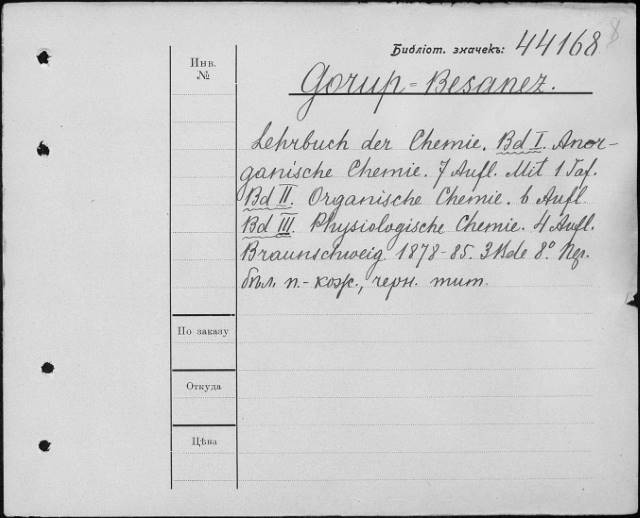 Библіот. значекъ: 44168
8
Инв.
№
Gorup-Besanez.
Lehrbuch der Chemie. Bd I. Anor-
ganische Chemie. 7 Aufl. Mit 1 Taf.
Bd II. Organische Chemie. 6 Aufl
Bd III. Physiologische Chemie. 4 Aufl.
Braunschweig 1878-85. 3 Bde 8° Пер.
бѣл. п.-кож., черн. тит.
По заказу
Откуда
Цѣна